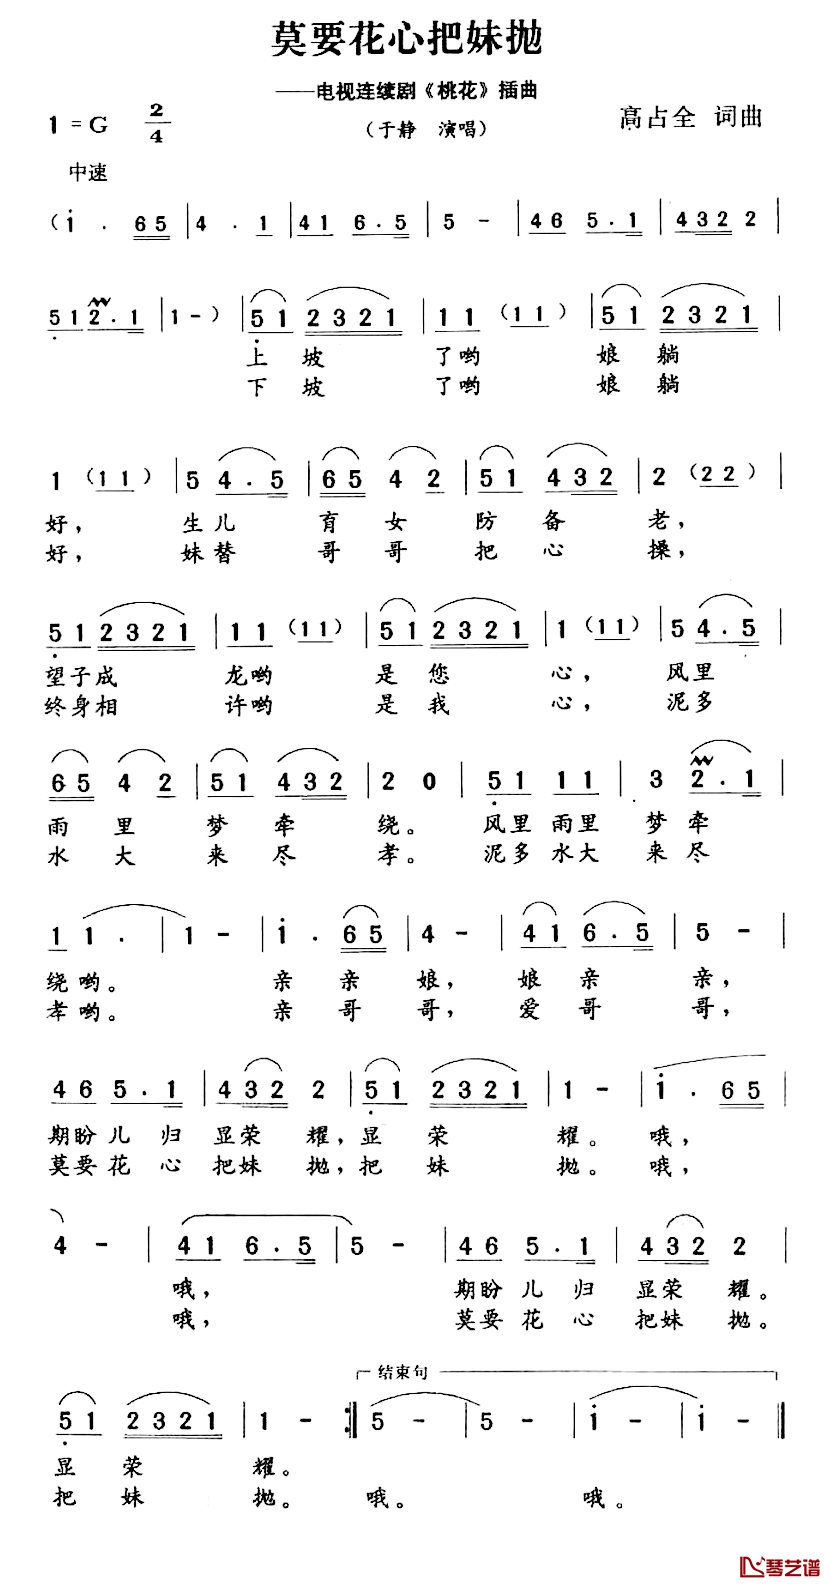 莫要花心把妹抛
——电视连续剧《桃花》插曲
1=G 2/4 （于静 演唱） 高占全 词曲
中速
（i · 65 | 4 · 1 | 41 6·5 | 5 - | 46 5·1 | 432 2 |
51 2·1 | 1 - ） | 51 2321 | 11 （11） | 51 2321 |
上坡 了哟 娘躺
下坡 了哟 娘躺
1 （11） | 5 4·5 | 65 4 2 | 51 432 | 2 （22） |
好，生儿育女防备老，
好，妹替哥哥把心操，
51 2321 | 11 （11） | 51 2321 | 1 （11） | 5 4·5 |
望子成 龙哟 是您 心，风里
终身相 许哟 是我 心，泥多
65 4 2 | 51 432 | 2 0 | 51 11 | 3 2·1 |
雨里 梦牵 绕。风里雨里 梦牵
水大 来尽 孝。泥多水大 来尽
1 1 · | 1 - | i · 65 | 4 - | 41 6·5 | 5 - |
绕哟。 亲亲娘，娘亲亲，
孝哟。 亲哥哥，爱哥哥，
46 5·1 | 432 2 | 51 2321 | 1 - | i · 65 |
期盼儿归显荣耀，显荣耀。哦，
莫要花心把妹抛，把妹抛。哦，
4 - | 41 6·5 | 5 - | 46 5·1 | 432 2 |
哦， 期盼儿归显荣耀。
哦， 莫要花心把妹抛。
结束句
51 2321 | 1 - :‖ 5 - | 5 - | i - | i - ‖
显荣耀。
把妹抛。哦。 哦。
琴艺谱